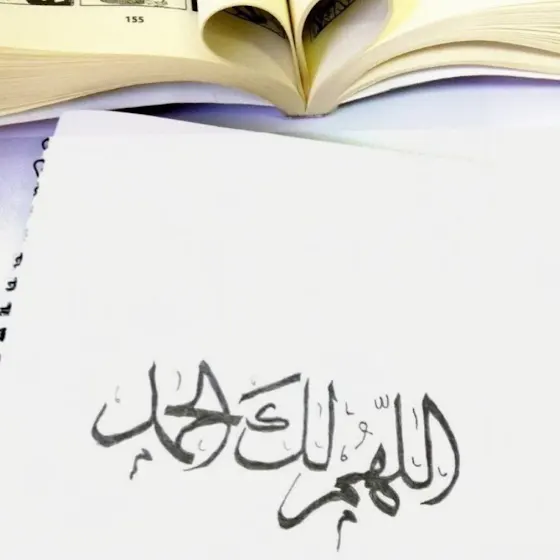 155
اللهم لك الحمد